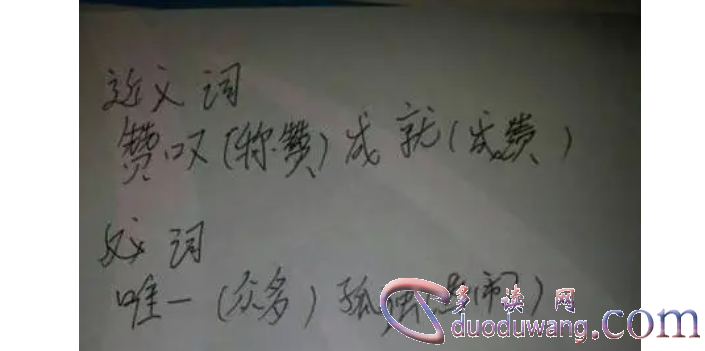 近义词
赞叹(称赞)成就(成赞)
反义词
唯一(众多)孤独
多读网
duoduwang.com